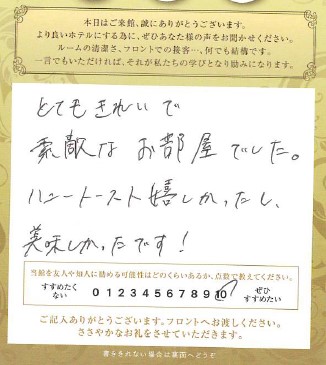 本日はご来館、誠にありがとうございます。
より良いホテルにする為に、ぜひあなた様の声をお聞かせください。
ルームの清潔さ、フロントでの接客…、何でも結構です。
一言でもいただければ、それが私たちの学びとなり励みになります。
とてもきれいで
素敵なお部屋でした。
ハニートースト嬉しかったし、
美味しかったです!
当館を友人や知人に勧める可能性はどのくらいあるか、点数で教えてください。
すすめたくない 0 1 2 3 4 5 6 7 8 9 10 ぜひすすめたい
ご記入ありがとうございます。フロントへお渡しください。
ささやかなお礼をさせていただきます。
書ききれない場合は裏面へどうぞ